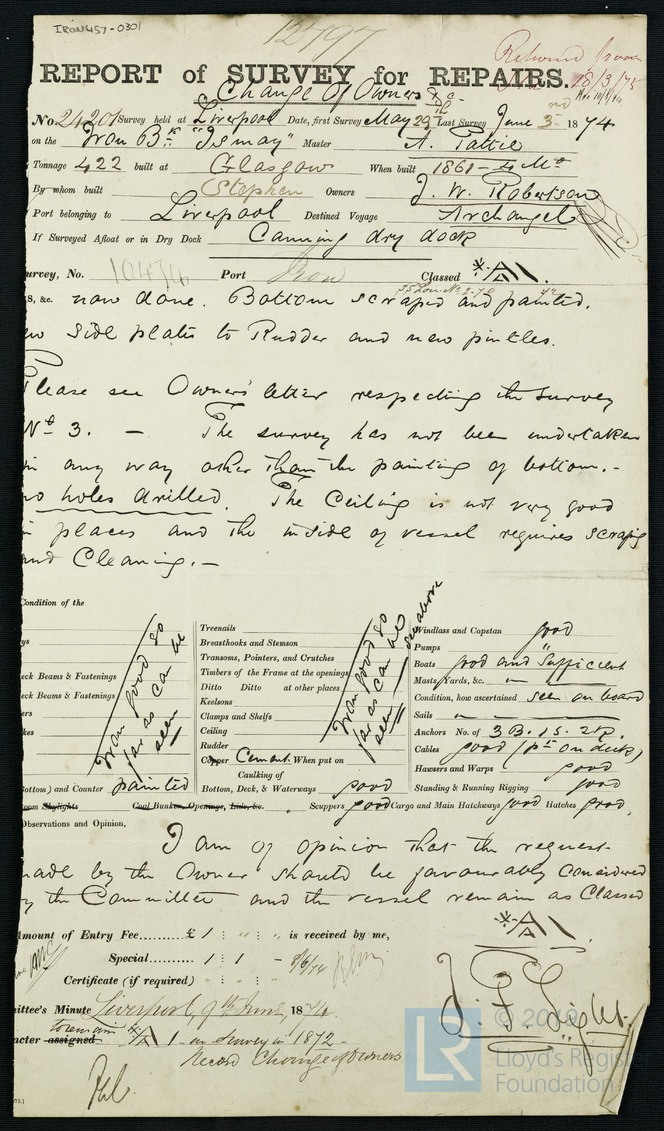 IRON457-0301
12797
REPORT of SURVEY for REPAIRS.
18/3/75
Change of Owners &c.
No. 24201 Survey held at Liverpool Date, first Survey May 29th Last Survey June 3rd 1874
on the Iron Bk "Ismay" Master A. Pattie
Tonnage 422 built at Glasgow When built 1861 - 4 Mo
By whom built Stephen Owners J. W. Robertson
Port belonging to Liverpool Destined Voyage Archangel
If Surveyed Afloat or in Dry Dock Canning dry dock
urvey, No. 10474 Port Iron Classed A1.
s, &c. now done. Bottom scraped and painted.
w side plates to Rudder and new pintles.
Please see Owners' letter respecting the survey
No 3. — The survey has not been undertaken
in any way other than the painting of bottom. -
no holes drilled. The Ceiling is not very good
in places and the inside of vessel requires scraping
and Cleaning. —
Condition of the
eck Beams & Fastenings
eck Beams & Fastenings
ers
kes
Iron good so far as can be seen
ottom) and Counter painted
Treenails
Breasthooks and Stemson
Transoms, Pointers, and Crutches
Timbers of the Frame at the openings
Ditto Ditto at other places
Keelsons
Clamps and Shelfs
Ceiling
Rudder
Iron good so far as can be seen
see above
Copper Cement. When put on
Caulking of
Bottom, Deck, & Waterways good
Windlass and Capstan good
Pumps "
Boats good and Sufficient
Masts, Yards, &c. "
Condition, how ascertained seen on board
Sails "
Anchors No. of 3 B. 1 S. 2 K.
Cables good (pt on deck)
Hawsers and Warps good
Standing & Running Rigging good
oom Skylights Coal Bunker, Openings, Lids, &c. Scuppers good Cargo and Main Hatchways good Hatches good,
Observations and Opinion,
I am of opinion that the request
made by the Owner should be favourably considered
by the Committee and the vessel remain as Classed
A1.
Amount of Entry Fee......... £ 1 : " : " is received by me,
Special...... 1 1 - 8/6/74
Certificate (if required)
ittee's Minute Liverpool, 9th June 1874.
acter assigned to remain A1 - on survey in 1872 -
Record Change of Owners
© 2019
LR
Lloyd's Register
Foundation